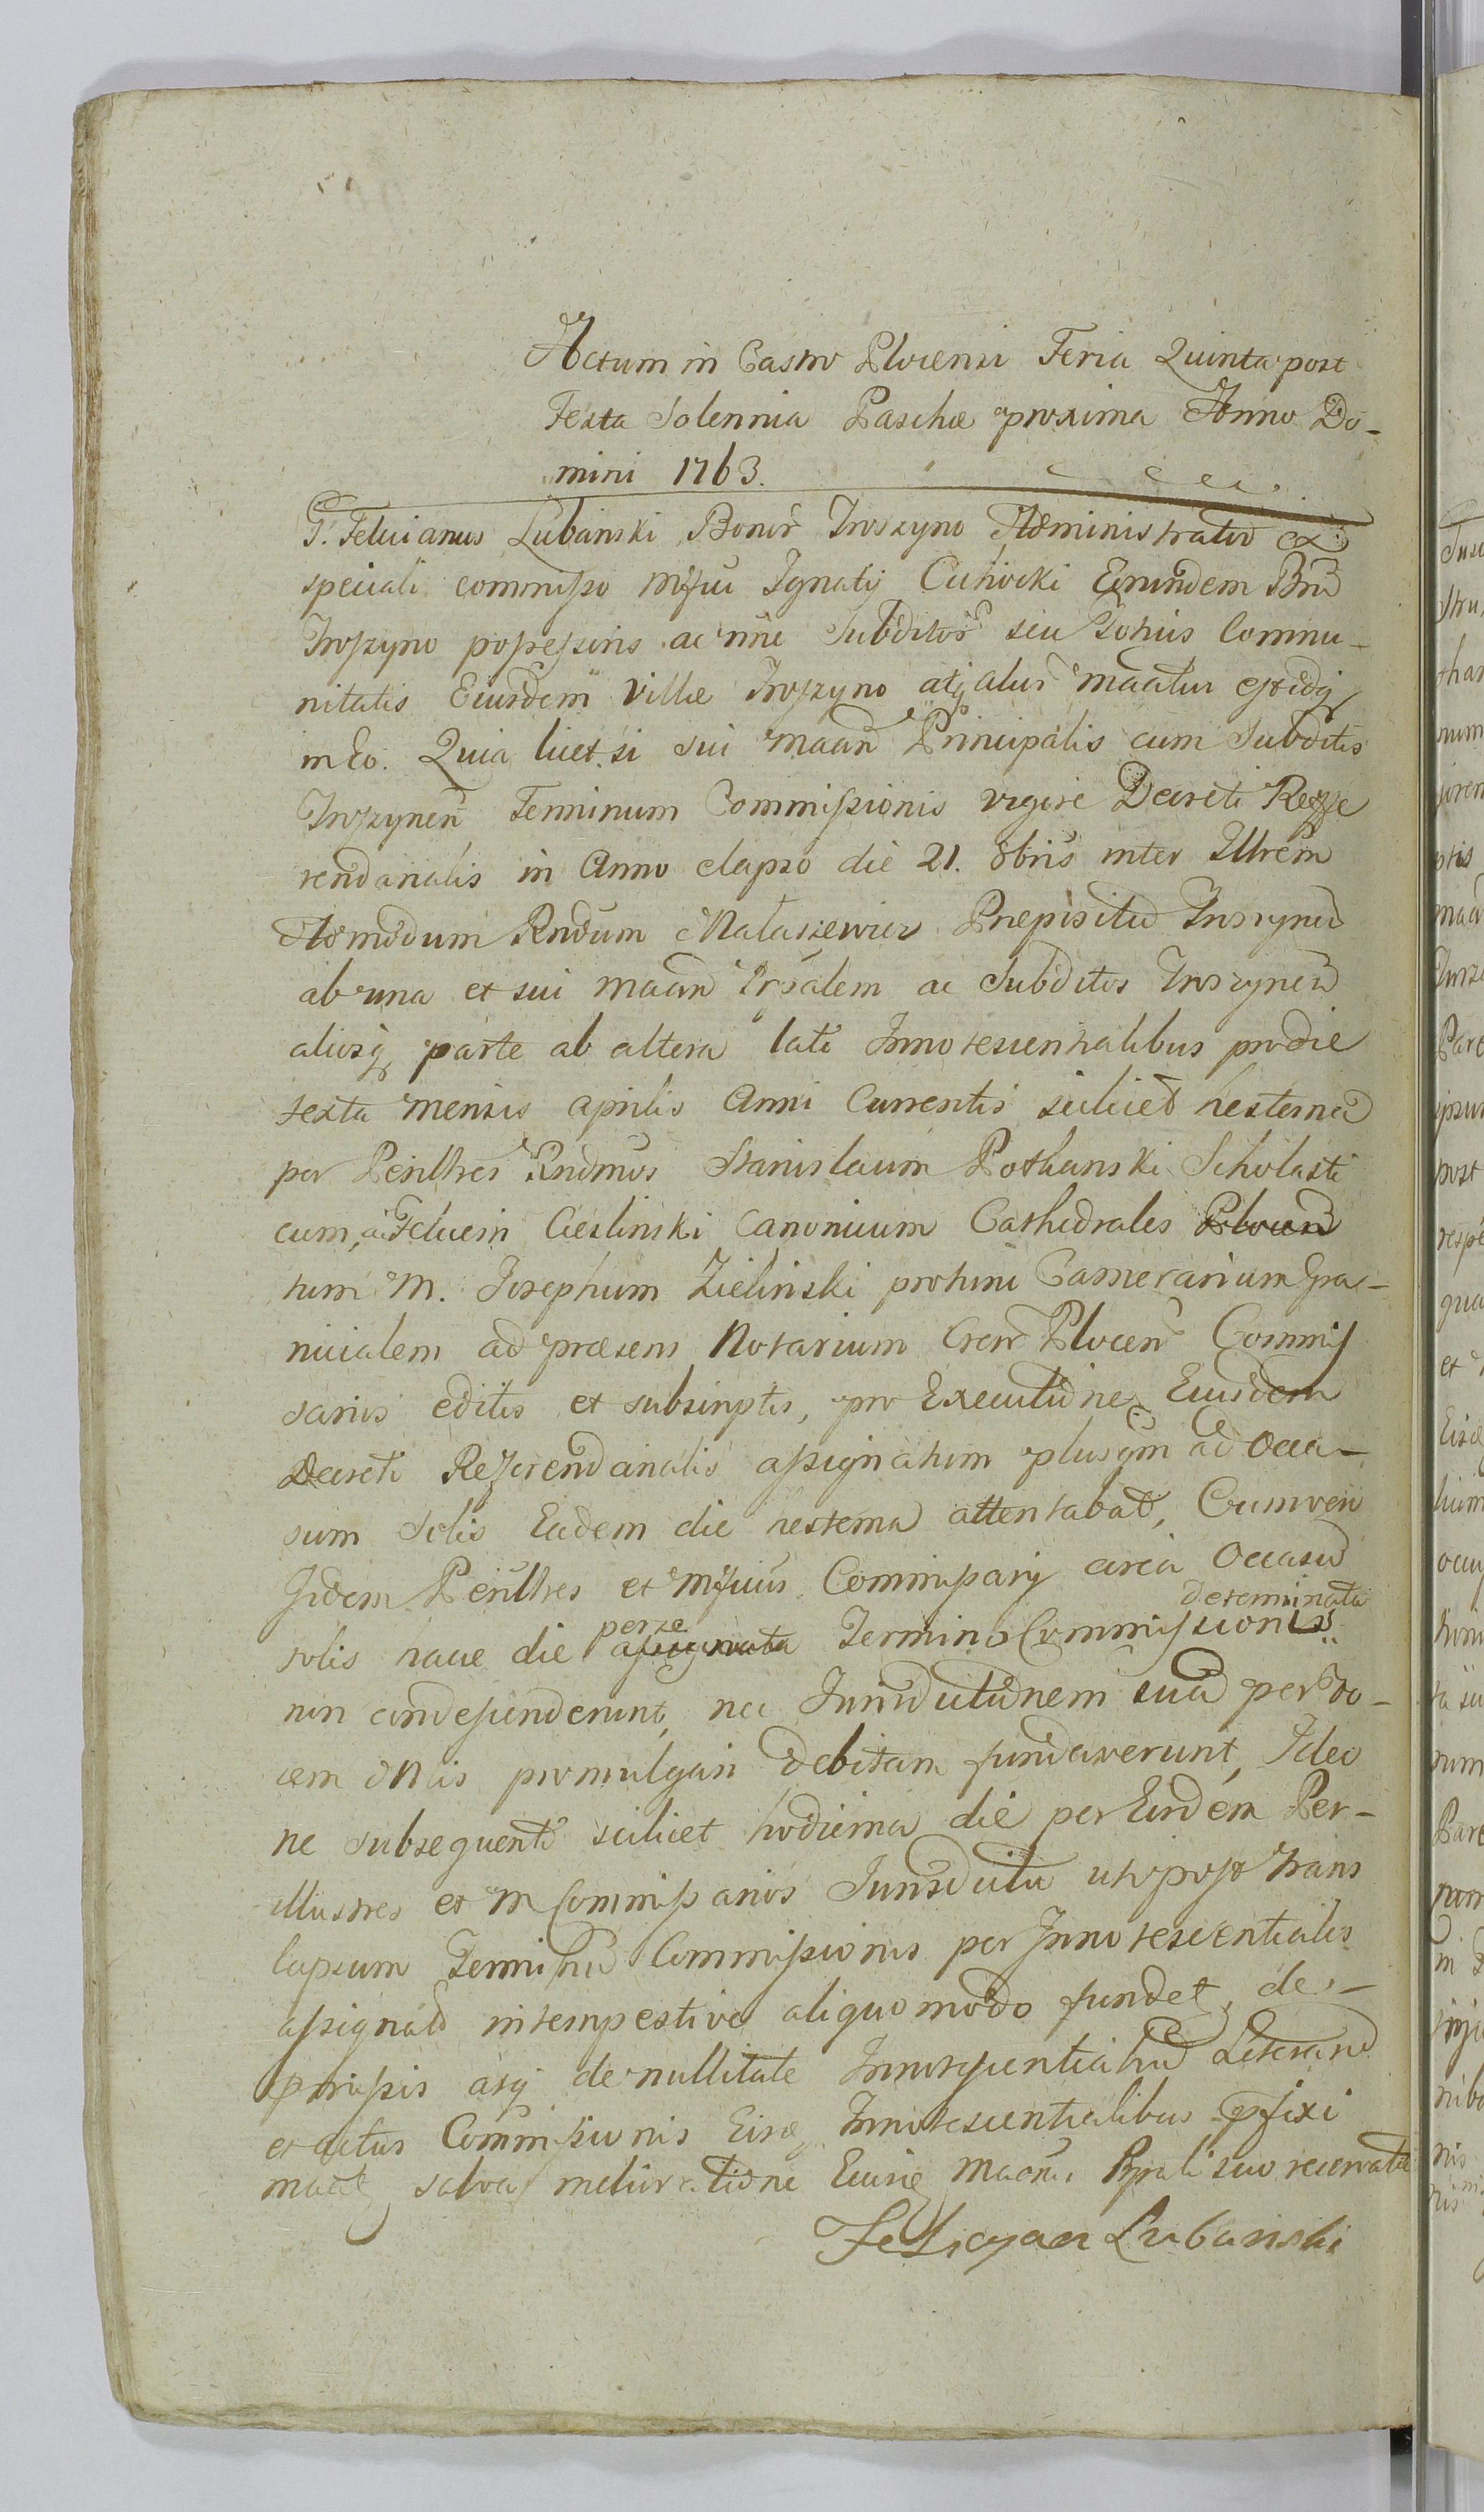 Actum in Castro Plocensi Feria Quinta post
Festa Solennia Paschæ proxima Anno Do-
mini 1763.
G. Felicianus Lubanski Bonor Troszyno Administrator ex
speciali commisso Mfici Ignatij Cichocki Eorundem Bnr
Troszyno possessoris ac nne Subditor seu Totius Commu-
nitatis Eiusdem Villæ Troszyno atq alior maatur estidq
in Eo. Quia licet si sui maan Principalis cum Subditis
Troszynen Terminum Commissionis vigore Decreti Reffe
rendarialis in Anno elapso die 21. 8bris inter Illrem
Admodum Rndum Mataszewicz Præpositu Troszynen
ab una et sui maan Prpalem ac Subditos Troszynen
aliosq parte ab altera lati Innotescentialibus pro die
sexta mensis aprilis Anni Currentis scilicet hesterna
per Perillres Rndmos Stanislaum Pothanski Scholasti
cum, ac Felicem Cieslinski Canonicum Cathedrales Plocen
tum M. Josephum Zielinski protunc Camerarium Gra-
nicialem ad præsens Notarium Cren Plocen Commis
sarios editis et subscriptis, pro Executione Eiusdem
Decreti Referendarialis assignatum plusqm ad Occa-
sum Solis Eadem die hesterna attentabat, Cum vero
Jidem Perillres et Mficus Commissarij circa Occasu
solis hacce die perse assignata Termino Commissionis determinata
non condescenderunt, nec Jurisdictionem suam per Vo-
cem Mlis promulgari debitam fundaverunt, Ideo
ne subsequenti scilicet hodierna die per Eosdem Per-
illustres et M Commissarios Jurisdictio uti post trans
lapsum Terminu Commissionis per Innotescentiales
assignatu intempestive aliquo modo fundet, de
præmissis atq de nullitate Innotescentialiu Literaru
et actus Commissionis Eisdq Innotescentialibus pfixi
maatq salva melioratione Eiusq maonis Ppali suo reservata
Felicyan Lubanski